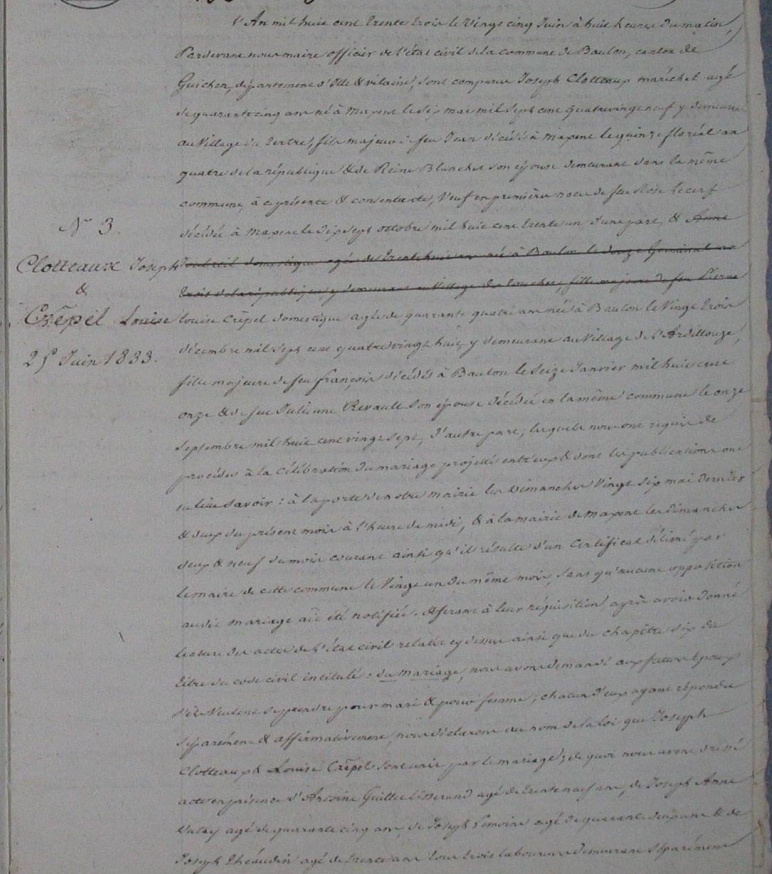 N° 3.
Clotteaux Joseph
&
Crêpel Louise
25 Juin 1833.
L'An mil huit cent trente trois le vingt cinq Juin à huit heures du matin,
Pardevant nous maire officier de l'état civil de la commune de Baulon, canton de
Guichen, département d'Ille & vilaine, sont comparus Joseph Clotteaux maréchal agé
de quarante cinq ans né à Maxent le six mai mil sept cent quatre vingt neuf y demeurant
au village du Tertre, fils majeur de feu Jean décédé à maxent le quinze floréal an
quatre de la république & de Reine Blanchet son épouse demeurant dans la même
commune, à ce présente & consentante, Veuf en première noce de feu Lecerf
décédée à Maxent le dix sept octobre mil huit cent trente un d'une part, & Anne
domestique agée de trente huit ans née à Baulon le douze Germinal an
trois de la république y demeurant au village des fille majeure de feu Pierre
Louise Crêpel domestique agée de quarante quatre ans née à Baulon le vingt trois
décembre mil sept cent quatre vingt huit y demeurant au village de l'Ardillouze,
fille majeure de feu françois décédé à Baulon le seize Janvier mil huit cent
onze & de feue Julienne Revault son épouse décédée en la même commune le onze
septembre mil huit cent vingt sept, d'autre part, lesquels nous ont requis de
procéder à la célébration du mariage projetté entr'eux & dont les publications ont
eu lieu savoir: à la porte de notre mairie les dimanches vingt six mai dernier
& deux du présent mois à l'heure de midi, & à la mairie de maxent les dimanches
deux & neuf du mois courant ainsi qu'il résulte d'un certificat délivré par
le maire de cette commune le vingt un du même mois, sans qu'aucune opposition
audit mariage ait été notifiée. Aferant à leur réquisition après avoir donné
lecture des actes de l'état civil relatés cy dessus ainsi que du chapître six du
titre du code civil intitulé: du mariage, nous avons demandé aux futurs époux
s'ils veulent se prendre pour mari & pour femme; chacun d'eux ayant répondu
séparément & affirmativement, nous déclarons au nom de la loi que Joseph
Clotteaux & Louise Crêpel sont unis par le mariage; de quoi nous avons dressé
acte en présence d'Antoine Guillet tisserand agé de trente neuf ans, de Joseph Anne
agé de quarante cinq ans, de Joseph Lemoine agé de quarante deux ans & de
Joseph agé de trente ans tous trois laboureurs demeurant séparément